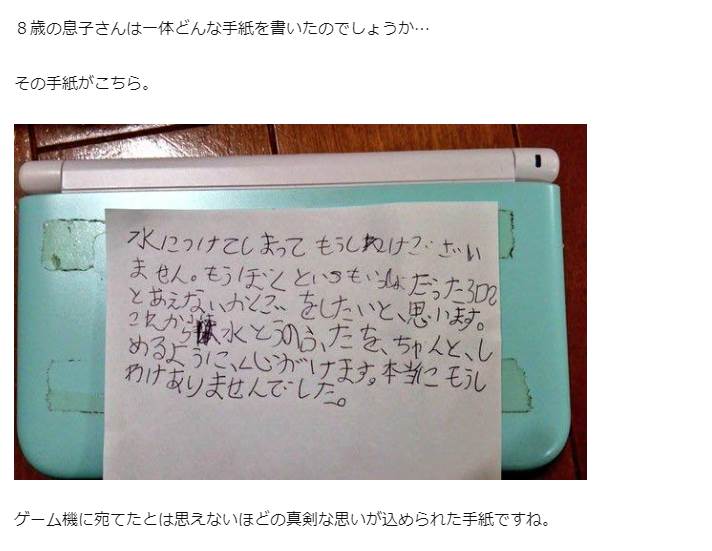 ８歳の息子さんは一体どんな手紙を書いたのでしょうか…
その手紙がこちら。
水につけてしまって もうしわけございい
ません。もうぼくといつもいっしょだった3DS
とあえないかくごをしたいと、思います。
これからは水とうのふたを、ちゃんと、し
めるように、心がけます。本当にもうし
わけありませんでした。
ゲーム機に宛てたとは思えないほどの真剣な思いが込められた手紙ですね。